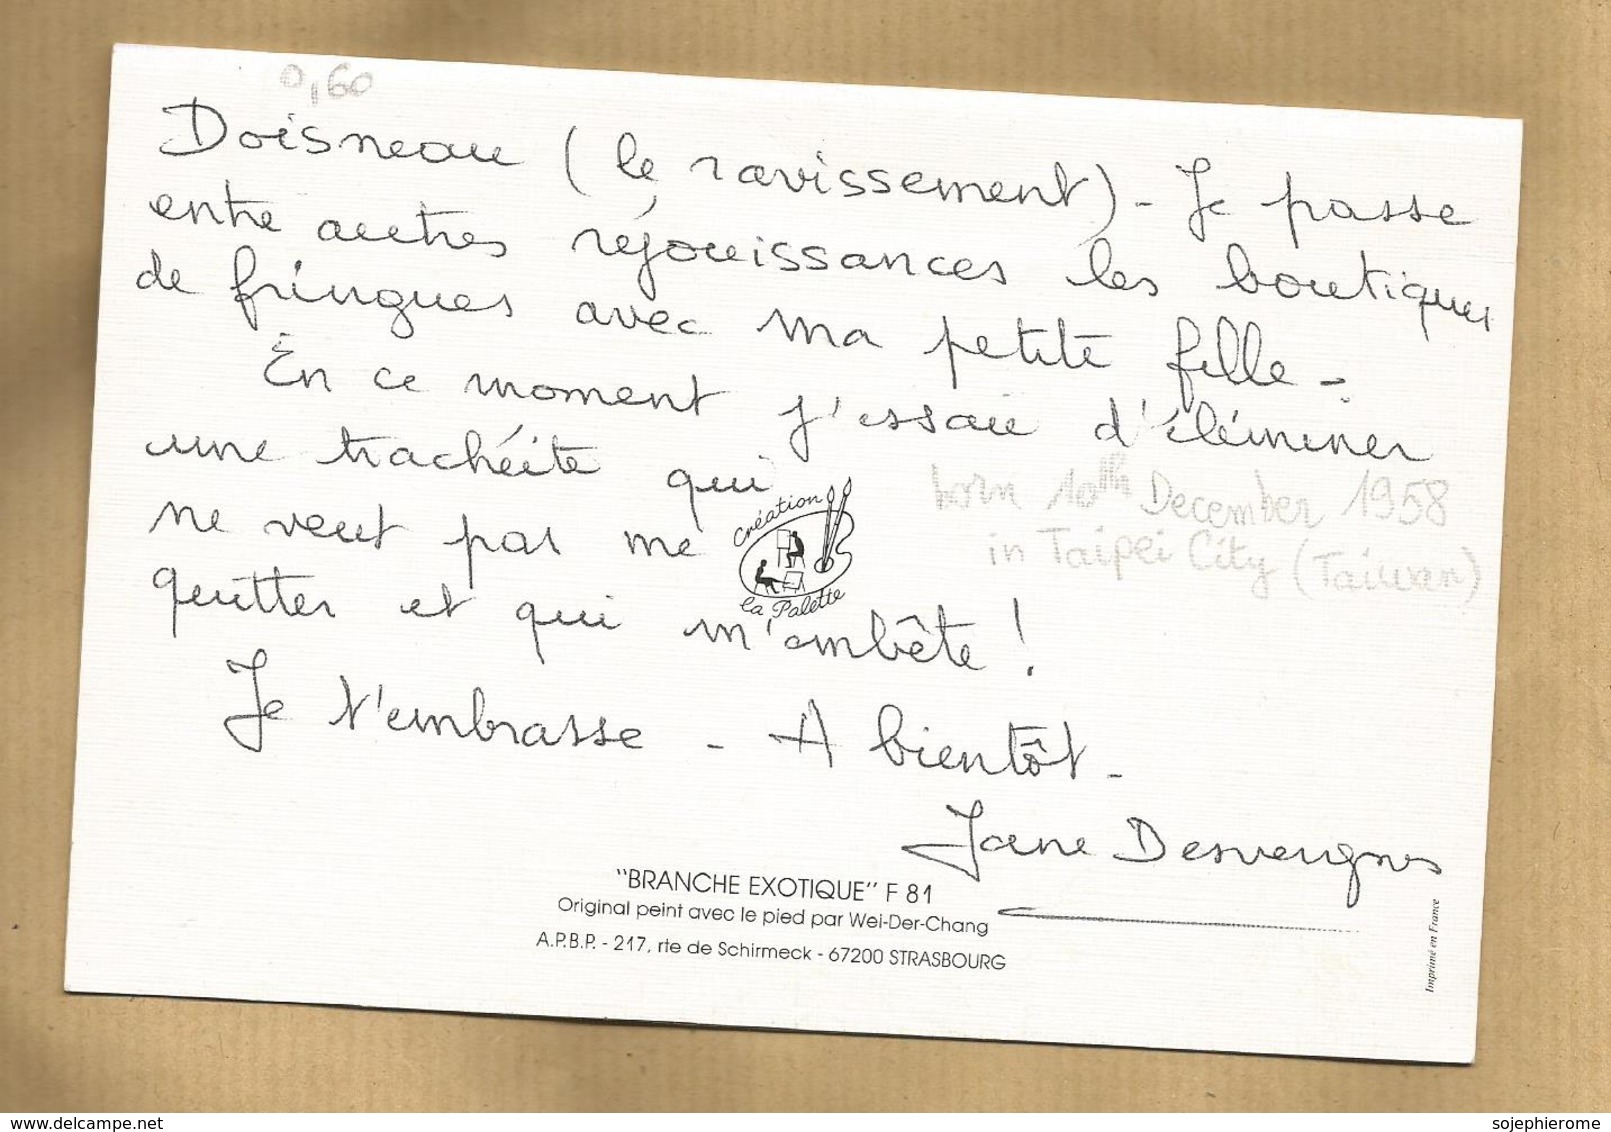 0,60
Doisneau (le ravissement) - Je passe
entre autres réjouissances les boutiques
de fringues avec ma petite fille -
En ce moment j'essaie d'éliminer
une trachéite qui
ne veut pas me
quitter et qui m'embête !
Je t'embrasse - A bientôt -
Jane Desvergnes
Création
la Palette
born 10th December 1958
in Taipei City (Taiwan)
"BRANCHE EXOTIQUE" F 81
Original peint avec le pied par Wei-Der-Chang
A.P.B.P. - 217, rte de Schirmeck - 67200 STRASBOURG
Imprimé en France
www.delcampe.net
sojephierome